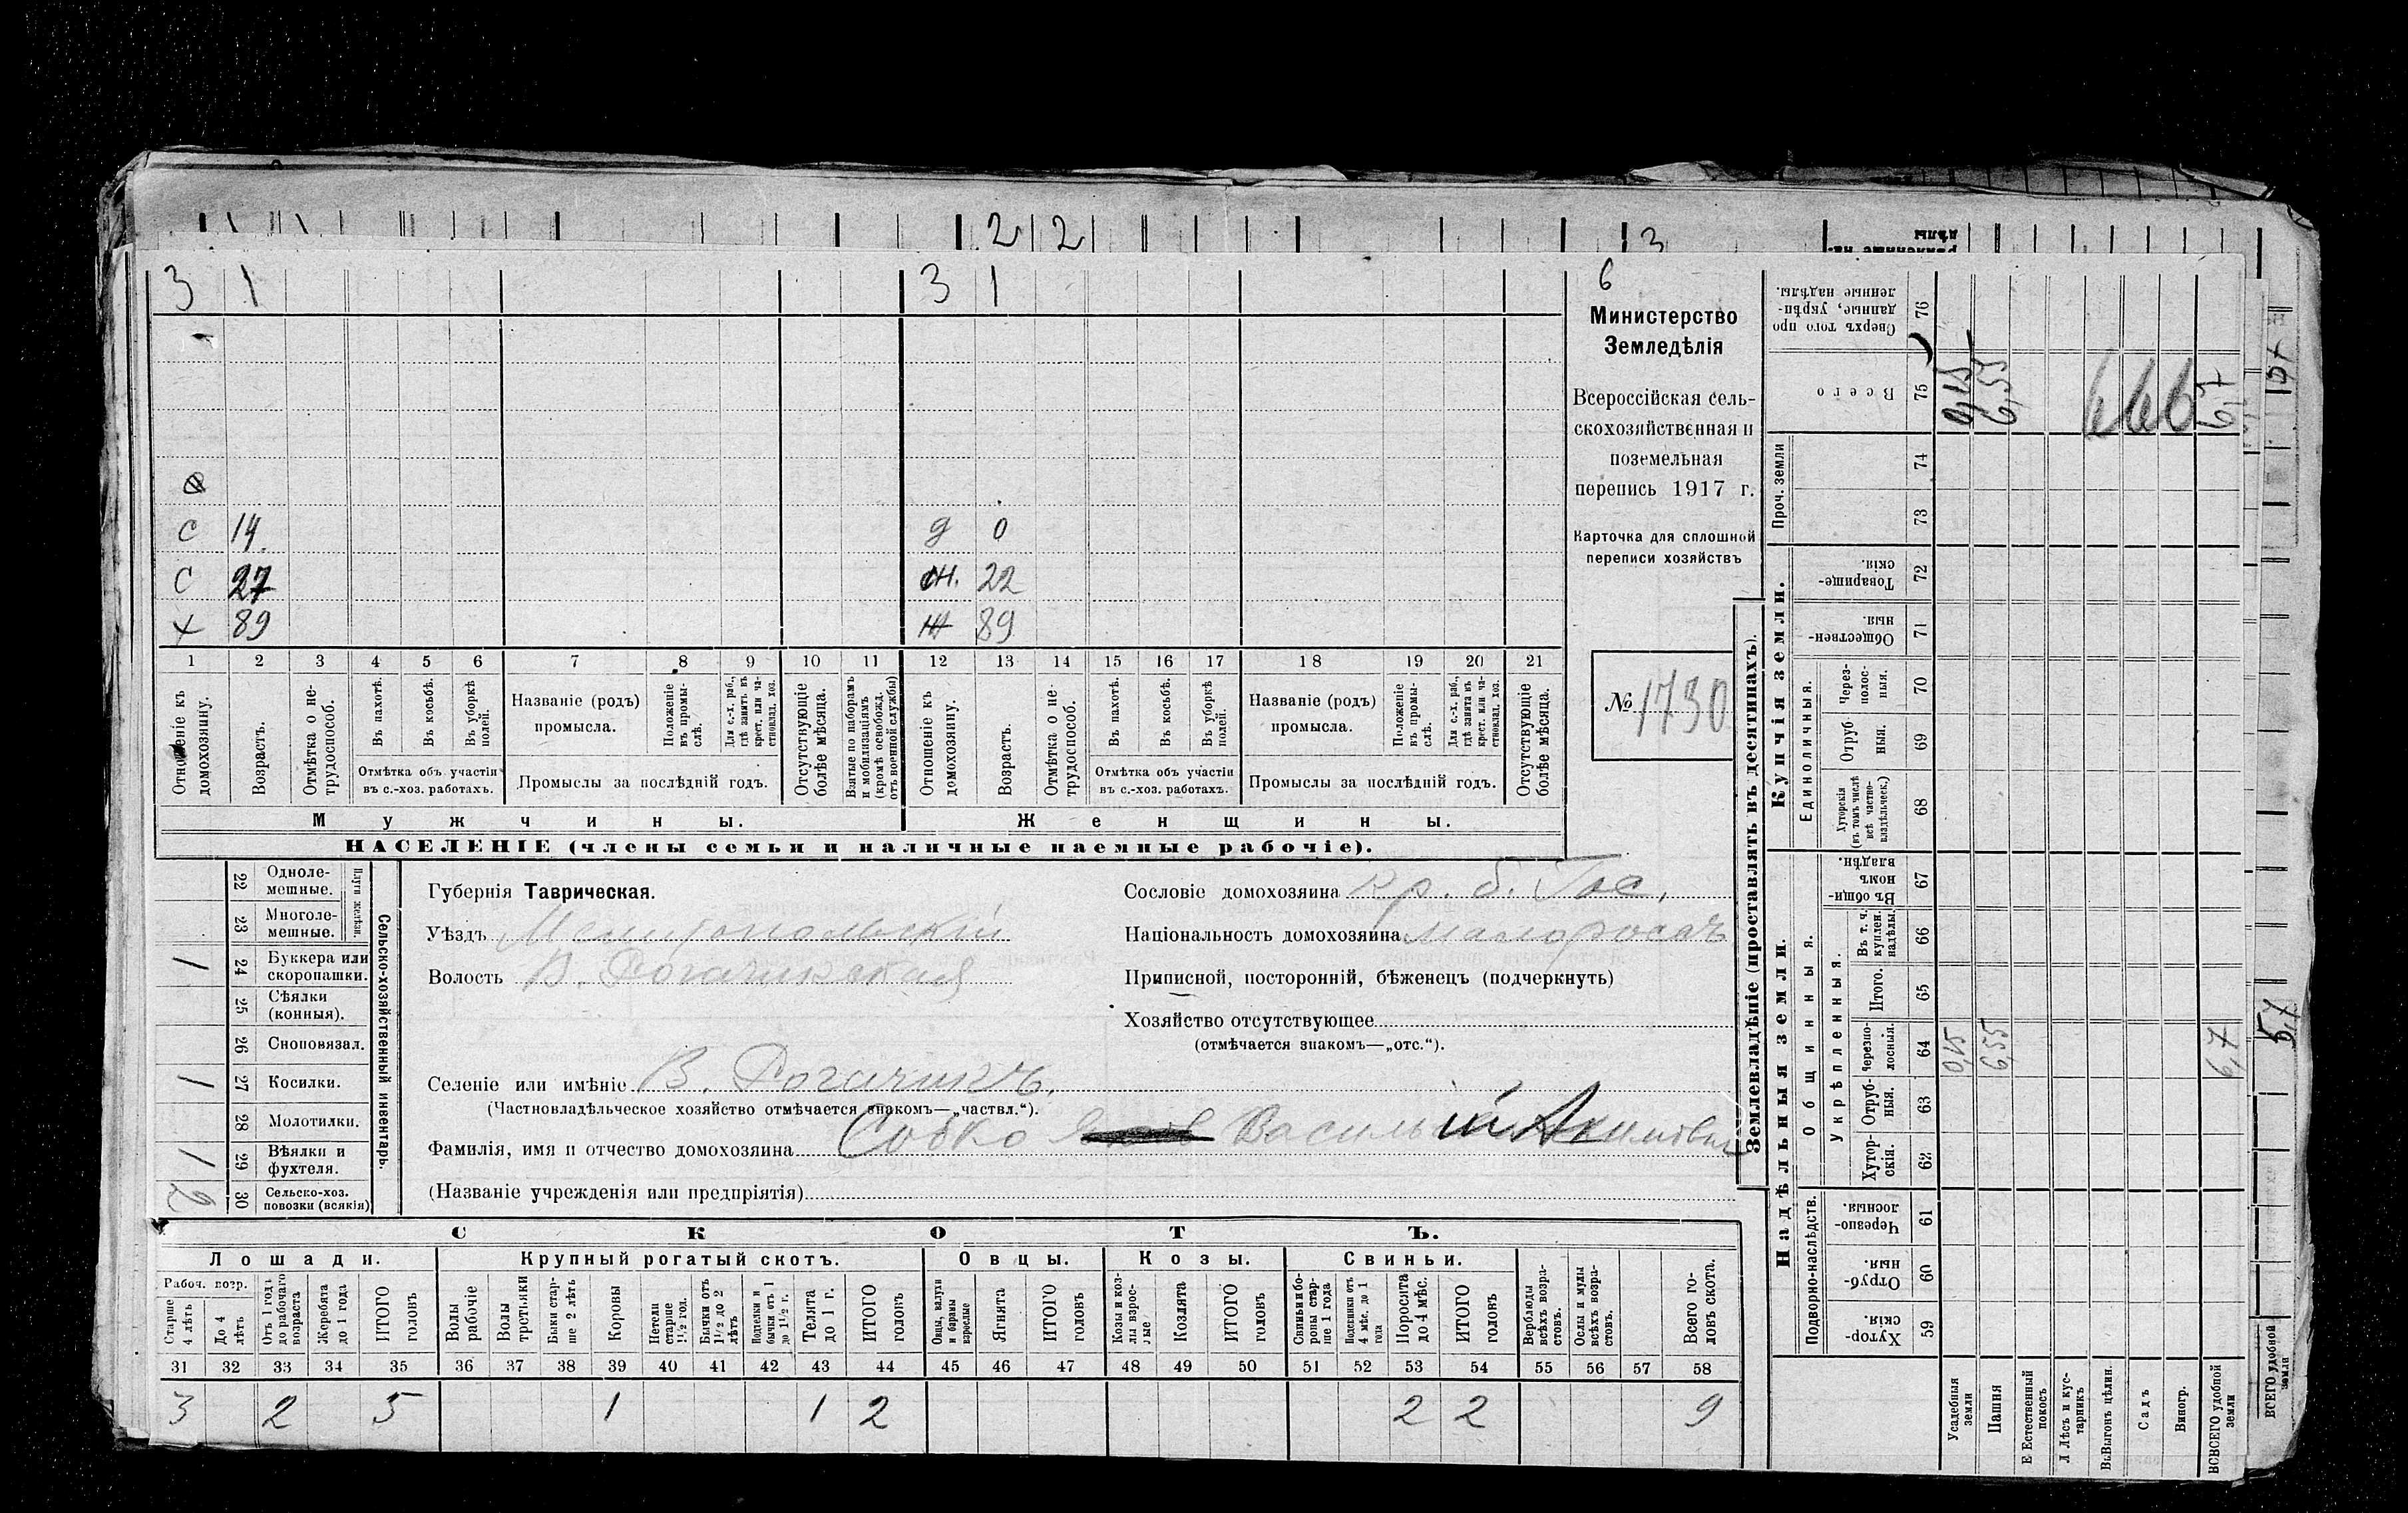 2 2 3
3 1 3 1 6
Министерство
Земледѣлія
Всероссійская сель-
скохозяйственная и
поземельная
перепись 1917 г.
Карточка для сплошной
переписи хозяйствъ
№ 1730
С 14 д 0
С 27 Ж. 22
Х 89 Ж 89
1 2 3 4 5 6 7 8 9 10 11 12 13 14 15 16 17 18 19 20 21
Отношеніе къ домохозяину.
Возрастъ.
Отмѣтка о не-трудоспособ.
Въ пахотѣ.
Въ косьбѣ.
Въ уборкѣ полей.
Отмѣтка объ участіи
въ с.-хоз. работахъ.
Названіе (родъ)
промысла.
Положеніе въ промы-слѣ.
Для с.-х. раб., гдѣ занятъ въ крест. или ча-стновлад. хоз.
Промыслы за послѣдній годъ.
Отсутствующіе болѣе мѣсяца.
Взятые по наборамъ и мобилизаціямъ (кромѣ освобожд. отъ военной службы)
Отношеніе къ домохозяину.
Возрастъ.
Отмѣтка о не-трудоспособ.
Въ пахотѣ.
Въ косьбѣ.
Въ уборкѣ полей.
Отмѣтка объ участіи
въ с.-хоз. работахъ.
Названіе (родъ)
промысла.
Положеніе въ промы-слѣ.
Для с.-х. раб., гдѣ занята въ крест. или ча-стновлад. хоз.
Промыслы за послѣдній годъ.
Отсутствующіе болѣе мѣсяца.
Мужчины. Женщины.
НАСЕЛЕНІЕ (члены семьи и наличные наемные рабочіе).
Сельско-хозяйственный инвентарь.
Плуги желѣзн.
22 Одноле-мешные.
23 Многоле-мешные.
1 24 Буккера или скоропашки.
25 Сѣялки (конныя).
26 Сноповязал.
1 27 Косилки.
28 Молотилки.
1 29 Вѣялки и фухтеля.
2 30 Сельско-хоз. повозки (всякія)
Губернія Таврическая.
Уѣздъ Мелитопольскій
Волость В. Рогачикская
Селеніе или имѣніе В. Рогачикъ.
(Частновладѣльческое хозяйство отмѣчается знакомъ—„частвл.“).
Фамилія, имя и отчество домохозяина Собко Василій Акимовъ
(Названіе учрежденія или предпріятія)
Сословіе домохозяина Кр. б. Гос.
Національность домохозяина малороссъ
Приписной, посторонній, бѣженецъ (подчеркнуть)
Хозяйство отсутствующее
(отмѣчается знакомъ—„отс.“).
СКОТЪ.
Лошади. Крупный рогатый скотъ. Овцы. Козы. Свиньи.
Рабоч. возр.
Старше 4 лѣтъ
До 4 лѣтъ
Отъ 1 годъ до рабочаго возраста
Жеребята до 1 года
ИТОГО головъ
Волы рабочіе
Волы третьяки
Быки стар-ше 2 лѣтъ
Коровы
Нетели старше 1½ год.
Бычки отъ 1½ до 2 лѣтъ
Подтелки и бычки отъ 1 до 1½ г.
Телята до 1 г.
ИТОГО головъ
Овцы, валухи и бараны взрослые
Ягнята
ИТОГО головъ
Козы и коз-лы взрос-лые
Козлята
ИТОГО головъ
Свиньи и бо-ровы стар-ше 1 года
Подсвинки отъ 4 мѣс. до 1 года
Поросята до 4 мѣс.
ИТОГО головъ
Верблюды всѣхъ возра-стовъ.
Ослы и мулы всѣхъ возра-стовъ.
Всего го-ловъ скота.
31 32 33 34 35 36 37 38 39 40 41 42 43 44 45 46 47 48 49 50 51 52 53 54 55 56 57 58
3 2 5 1 1 2 2 2 9
Землевладѣніе (проставлять въ десятинахъ).
Надѣльныя земли. Купчія земли. Проч. земли
Подворно-наслѣдств.
Общинныя.
Укрѣпленныя.
Единоличныя.
Хутор-скія. 59
Отруб-ныя. 60
Черезпо-лосныя. 61
Хутор-скія. 62
Отруб-ныя. 63
Черезпо-лосныя. 64
Итого. 65
Въ т. ч. куплен. надѣлы. 66
Въ общин-номъ владѣн. 67
Хуторскія (въ томъ числѣ всѣ частно-владѣльческ.) 68
Отруб-ныя. 69
Через-полос-ныя. 70
Обществен-ныя. 71
Товарище-скія. 72
73
74
Всего 75
Сверхъ того про-данные, укрѣп-ленные надѣлы. 76
Усадебныя земли 0,15 0,15
Пашня 6,55 6,55
Естественный покосъ
Лѣсъ и кус-тарникъ
Выгонъ цѣлин.
Садъ
Виногр.
ВСЕГО удобной земли 6,7 6,7
666
ВСЕГО удобной земли 5,7